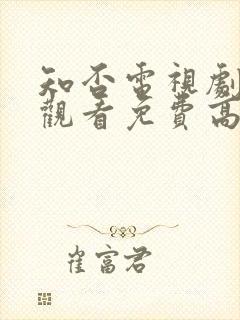 知否電視劇
觀看免費高
崔富君